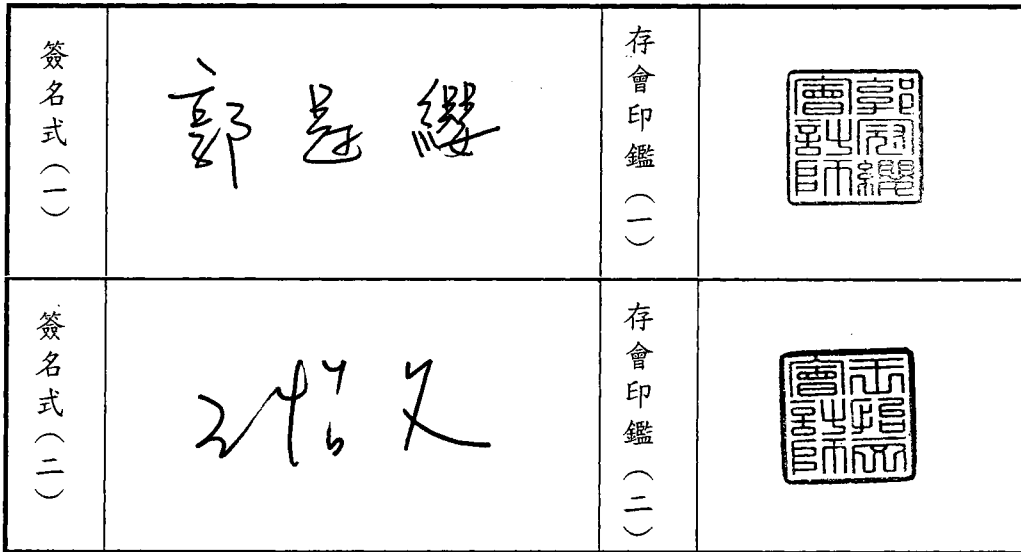 簽名式（一）
郭冠纓
存會印鑑（一）
郭冠纓
會計師
簽名式（二）
王怡文
存會印鑑（二）
王怡文
會計師